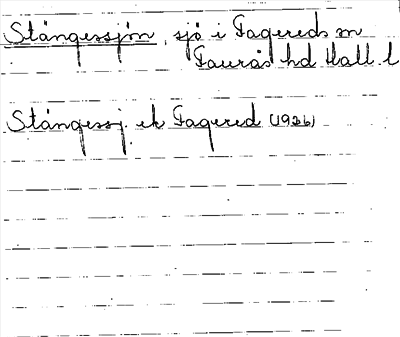 Stångessjön, sjö i Fagereds sn
Faurås hd Hall. l
Stångessj. ek Fagered (1926)